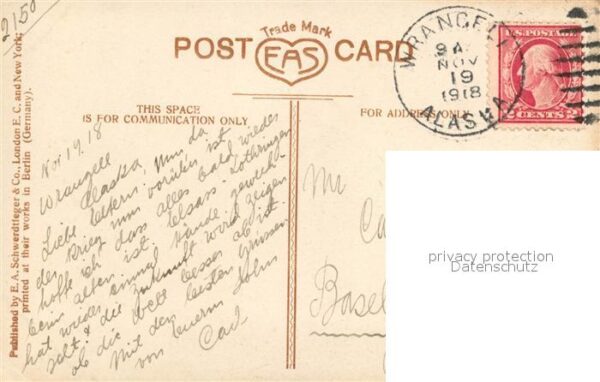 2150
Trade Mark
POST CARD
EAS
THIS SPACE
IS FOR COMMUNICATION ONLY
FOR ADDRESS ONLY
WRANGELL
9 A
NOV
19
1918
ALASKA
U.S. POSTAGE
2 CENTS 2
Published by E. A. Schwerdtfeger & Co., London E. C. and New
printed at their works in Berlin (Germany).
Nov 19. 18
Wrangell
Alaska
Liebe Eltern, Nun da
der Krieg nun vorüber ist
hoffe ich das alles bald wieder
beim alten ist. Elsass-Lothringen
hat wieder einmal Hände gewech-
selt & die Zukunft wird zeigen
ob die Welt besser ab ist.
Mit den besten Grüssen
von Euerm Sohn
Carl
Mr
Basel
privacy protection
Datenschutz